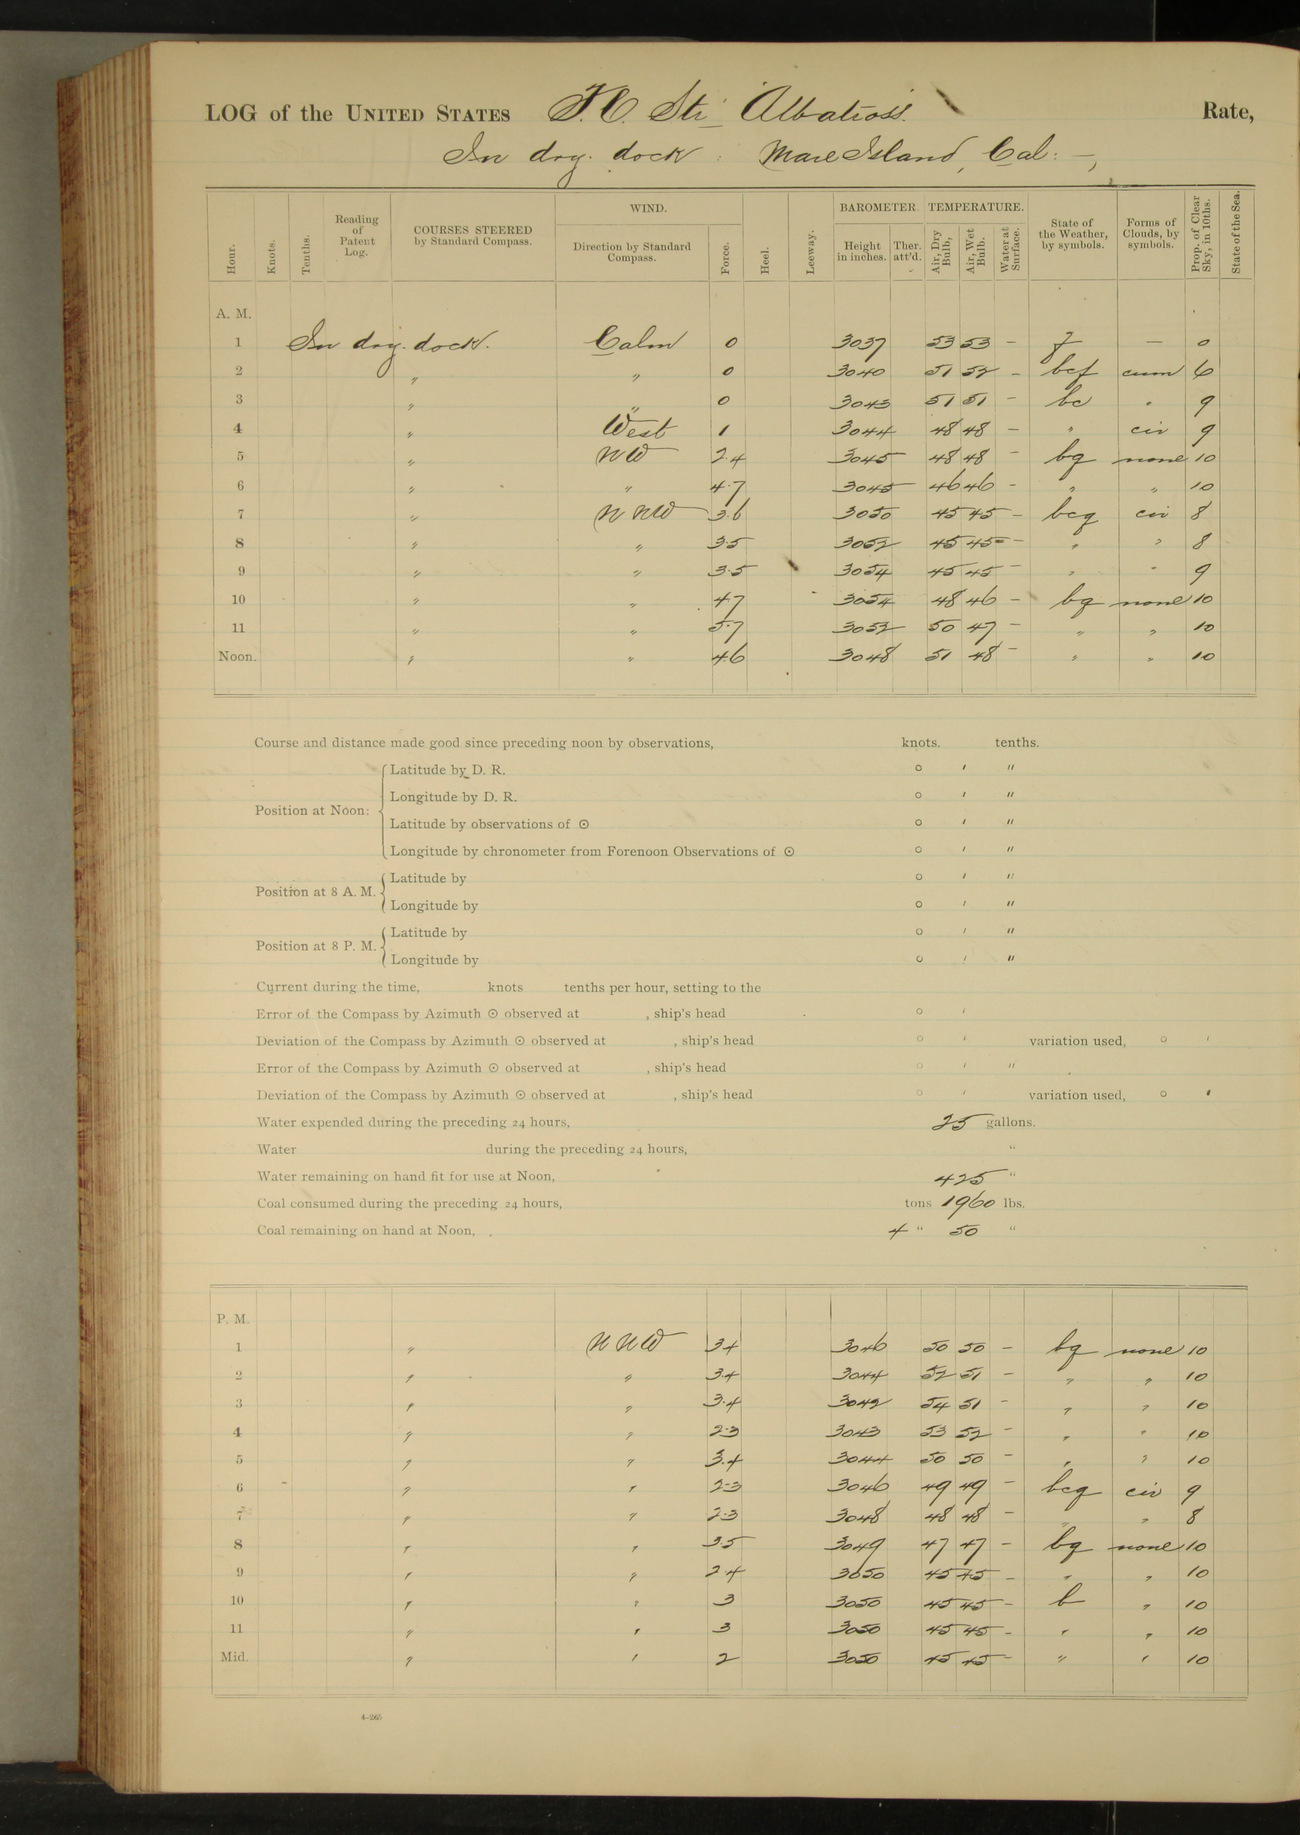 LOG of the UNITED STATES F. C. Str Albatross. Rate,
In dry dock : Mare Island, Cal: —,
Hour. Knots. Tenths. Reading of Patent Log. COURSES STEERED by Standard Compass. WIND. Direction by Standard Compass. Force. Heel. Leeway. BAROMETER. Height in inches. Ther. att'd. TEMPERATURE. Air, Dry Bulb, Air, Wet Bulb. Water at Surface. State of the Weather, by symbols. Forms of Clouds, by symbols. Prop. of Clear Sky, in 10ths. State of the Sea.
A. M.
1 In dry. dock. Calm 0 3037 53 53 - f — 0
2 " " 0 3040 51 52 - bcf cum 6
3 " " 0 3043 51 51 - bc " 9
4 " West 1 3044 48 48 - " cir 9
5 " NW 2.4 3045 48 48 - bq none 10
6 " " 4.7 3045 46 46 - " " 10
7 " NNW 3.6 3050 45 45 - bcq cir 8
8 " " 3.5 3052 45 45 - " " 8
9 " " 3.5 3054 45 45 - " " 9
10 " " 4.7 3054 48 46 - bq none 10
11 " " 5.7 3052 50 47 - " " 10
Noon. " " 4.6 3048 51 48 - " " 10
Course and distance made good since preceding noon by observations, knots. tenths.
Position at Noon: Latitude by D. R. ° ′ ″
Longitude by D. R. ° ′ ″
Latitude by observations of ☉ ° ′ ″
Longitude by chronometer from Forenoon Observations of ☉ ° ′ ″
Position at 8 A. M. Latitude by ° ′ ″
Longitude by ° ′ ″
Position at 8 P. M. Latitude by ° ′ ″
Longitude by ° ′ ″
Current during the time, knots tenths per hour, setting to the
Error of the Compass by Azimuth ☉ observed at , ship's head ° ′
Deviation of the Compass by Azimuth ☉ observed at , ship's head ° ′ variation used, ° ′
Error of the Compass by Azimuth ☉ observed at , ship's head ° ′ ″
Deviation of the Compass by Azimuth ☉ observed at , ship's head ° ′ variation used, ° ′
Water expended during the preceding 24 hours, 25 gallons.
Water during the preceding 24 hours, "
Water remaining on hand fit for use at Noon, 425 "
Coal consumed during the preceding 24 hours, tons 1960 lbs.
Coal remaining on hand at Noon, 4 " 50 "
P. M.
1 " NNW 3.4 3046 50 50 - bq none 10
2 " " 3.4 3044 52 51 - " " 10
3 " " 3.4 3042 54 51 - " " 10
4 " " 2.3 3043 53 52 - " " 10
5 " " 3.4 3044 50 50 - " " 10
6 " " 2-3 3046 49 49 - bcq cir 9
7 " " 2.3 3048 48 48 - " " 8
8 " " 3.5 3049 47 47 - bq none 10
9 " " 2.4 3050 45 45 - " " 10
10 " " 3 3050 45 45 - b " 10
11 " " 3 3050 45 45 - " " 10
Mid. " " 2 3050 45 45 - " " 10
4—265